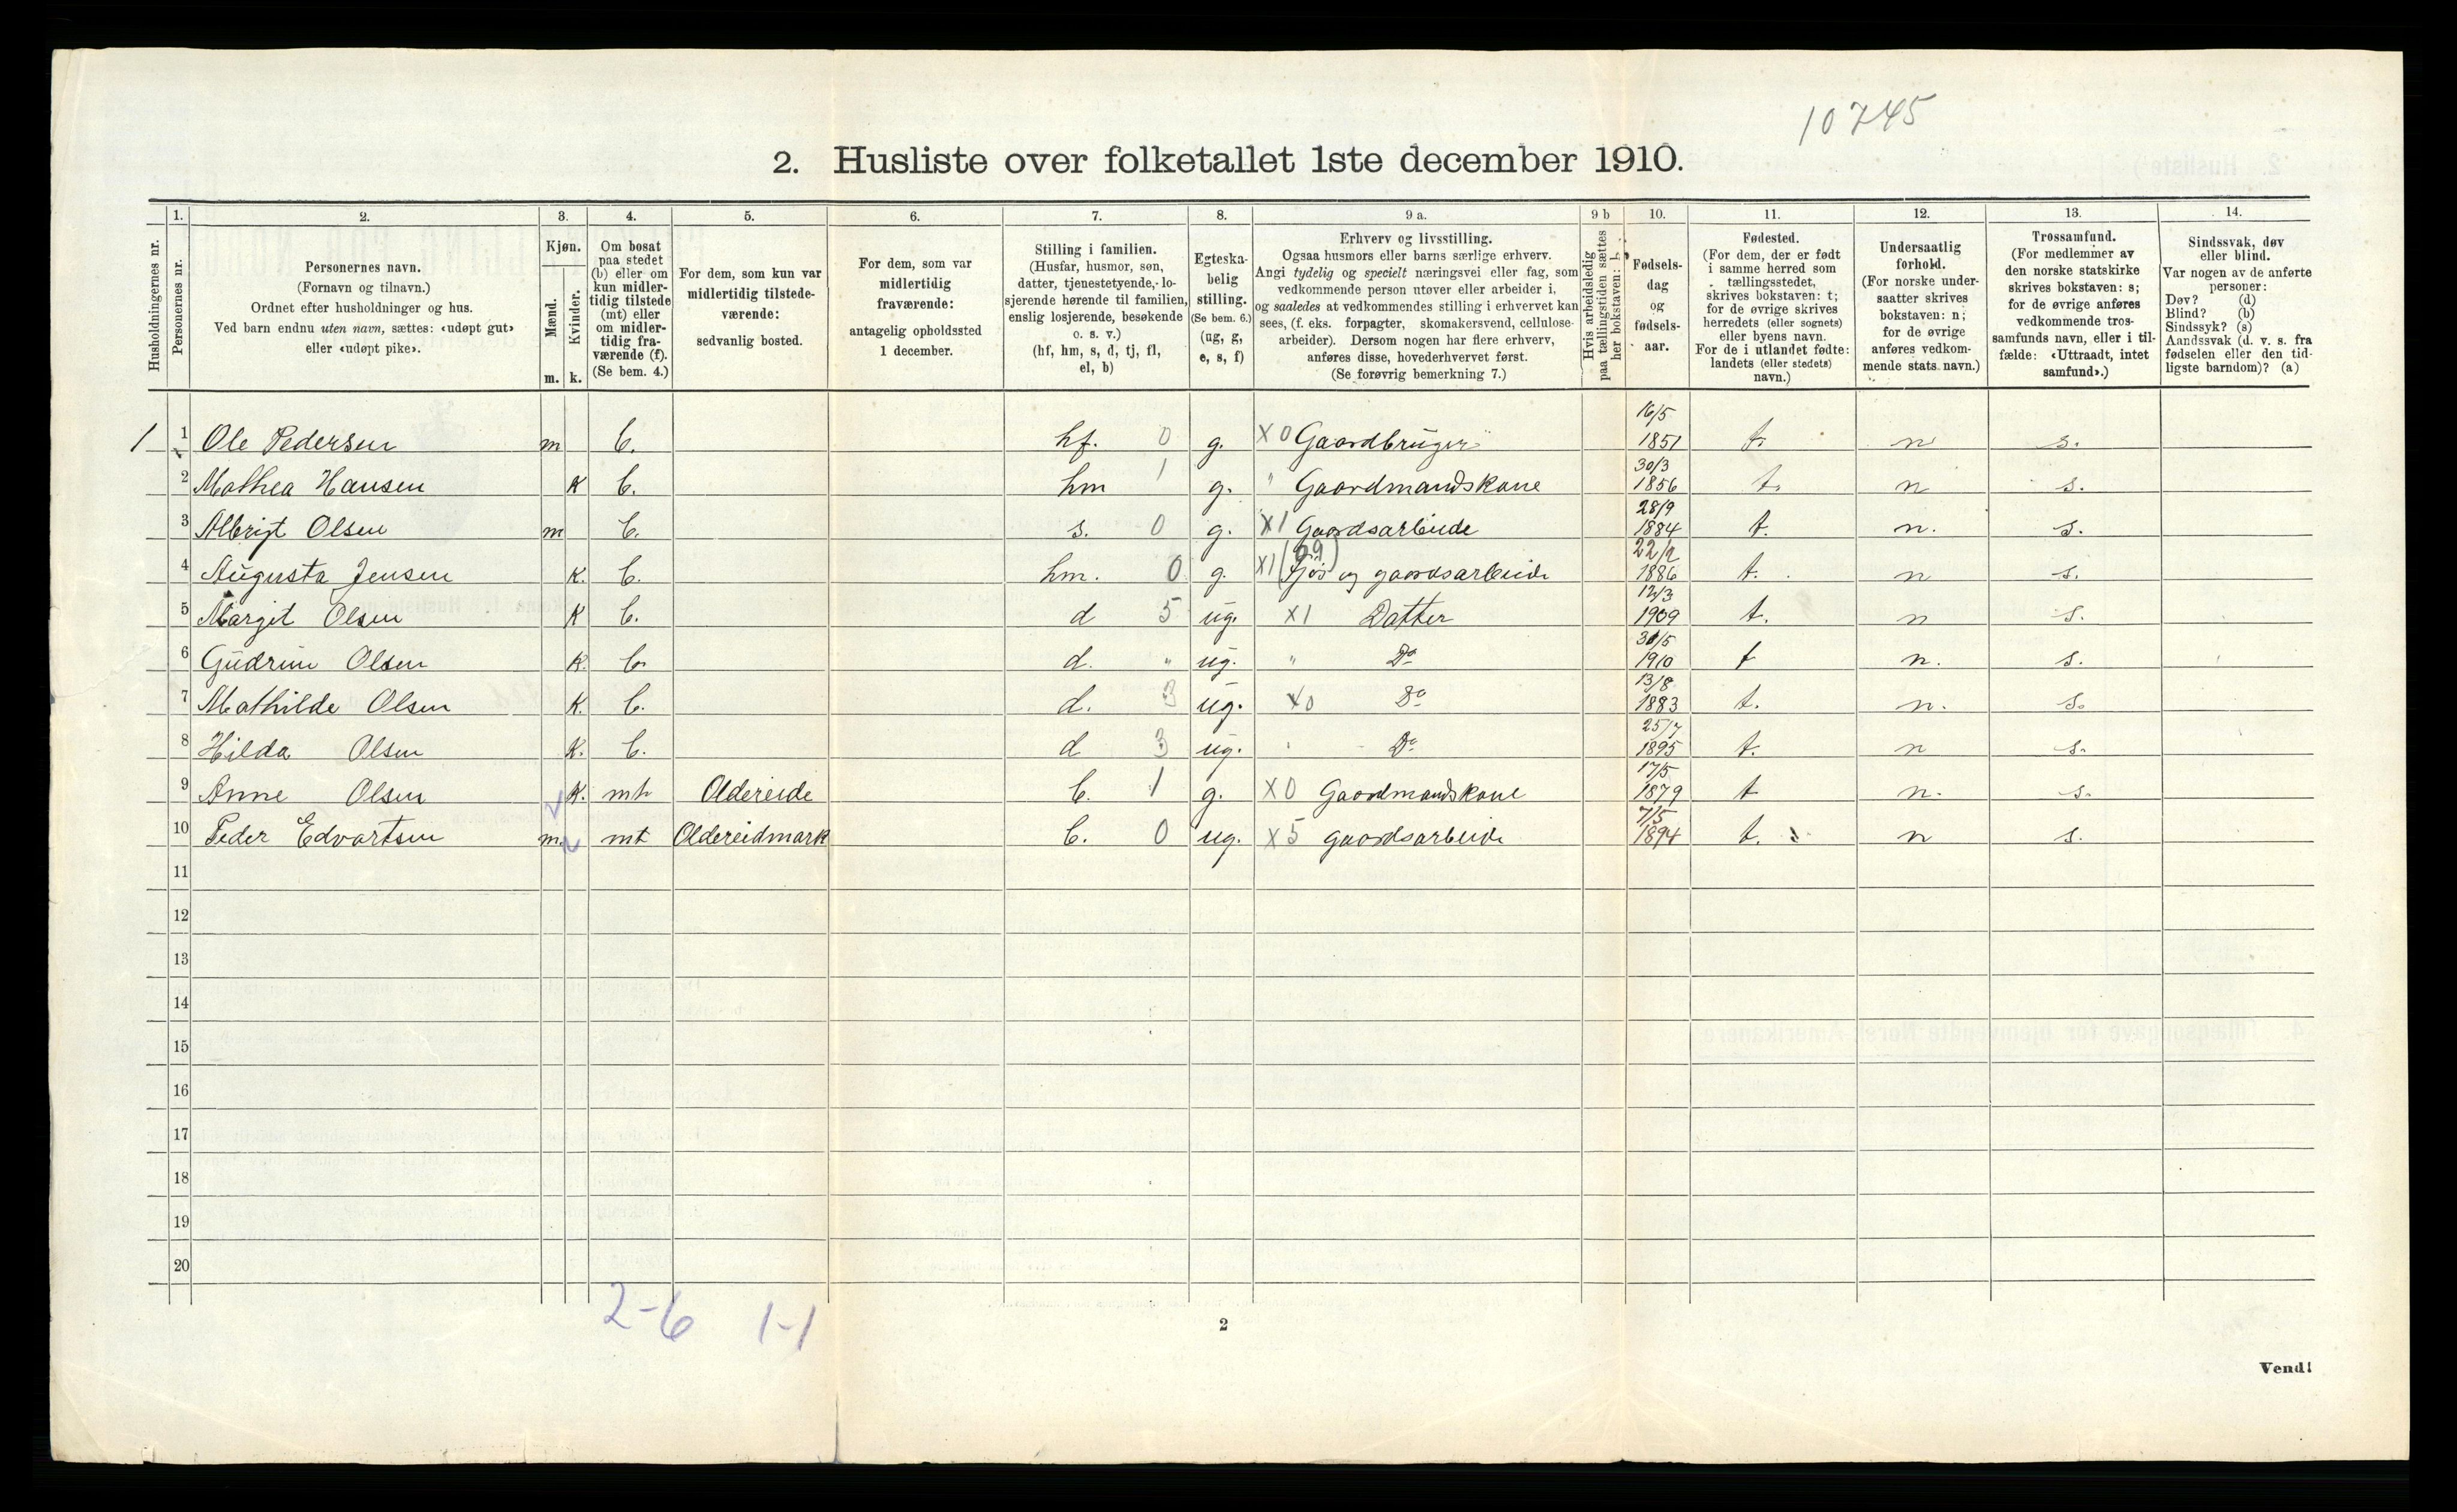 10745
2. Husliste over folketallet 1ste december 1910.
Husholdningernes nr.
1. Personernes nr.
2. Personernes navn. (Fornavn og tilnavn.) Ordnet efter husholdninger og hus. Ved barn endnu uten navn, sættes: «udøpt gut» eller «udøpt pike».
3. Kjøn. Mænd. m. Kvinder. k.
4. Om bosat paa stedet (b) eller om kun midlertidig tilstede (mt) eller om midlertidig fraværende (f). (Se bem. 4.)
5. For dem, som kun var midlertidig tilstedeværende: sedvanlig bosted.
6. For dem, som var midlertidig fraværende: antagelig opholdssted 1 december.
7. Stilling i familien. (Husfar, husmor, søn, datter, tjenestetyende, losjerende hørende til familien, enslig losjerende, besøkende o. s. v.) (hf, hm, s, d, tj, fl, el, b)
8. Egteskabelig stilling. (Se bem. 6.) (ug, g, e, s, f)
9 a. Erhverv og livsstilling. Ogsaa husmors eller barns særlige erhverv. Angi tydelig og specielt næringsvei eller fag, som vedkommende person utøver eller arbeider i, og saaledes at vedkommendes stilling i erhvervet kan sees, (f. eks. forpagter, skomakersvend, cellulosearbeider). Dersom nogen har flere erhverv, anføres disse, hovederhvervet først. (Se forøvrig bemerkning 7.)
9 b Hvis arbeidsledig paa tællingstiden sættes her bokstaven: l.
10. Fødselsdag og fødselsaar.
11. Fødested. (For dem, der er født i samme herred som tællingsstedet, skrives bokstaven: t; for de øvrige skrives herredets (eller sognets) eller byens navn. For de i utlandet fødte: landets (eller stedets) navn.)
12. Undersaatlig forhold. (For norske undersaatter skrives bokstaven: n; for de øvrige anføres vedkommende stats navn.)
13. Trossamfund. (For medlemmer av den norske statskirke skrives bokstaven: s; for de øvrige anføres vedkommende trossamfunds navn, eller i tilfælde: «Uttraadt, intet samfund».)
14. Sindssvak, døv eller blind. Var nogen av de anførte personer: Døv? (d) Blind? (b) Sindssyk? (s) Aandssvak (d. v. s. fra fødselen eller den tidligste barndom)? (a)
1 1 Ole Pedersen m b. hf. 0 g. X0 Gaardbruger 16/5 1851 t. n s.
2 Mathea Hansen K b. hm 1 g. " Gaardmandskone 30/3 1856 t. n s.
3 Albrigt Olsen m b. s. 0 g. X1 Gaardsarbeide 28/9 1884 t. n. s.
4 Augusta Jensen K. b. hm. 0 g. X1 (Fjøs og gaardsarbeide 1886 t. n s.
5 Margit Olsen K b. d 5 ug. X1 Datter 12/3 1909 t. n s.
6 Gudrun Olsen K. b. d. " ug. " Do 1910 t n. s.
7 Mathilde Olsen K. b. d. 3 ug. X0 Do 13/8 1883 t. n. s.
8 Hilda Olsen K. b. d 3 ug. " Do 25/7 1895 t. n s.
9 Anne Olsen K. mt Oldereide b. 1 g. X0 Gaardmandskone 17/5 1879 t n. s.
10 Peder Edvartsen m. mt Oldereidmark b. 0 ug. X5 gaardsarbeide 7/5 1894 t. n s.
11
12
13
14
15
16
17
18
19
20
2-6 1-1
2
Vend!